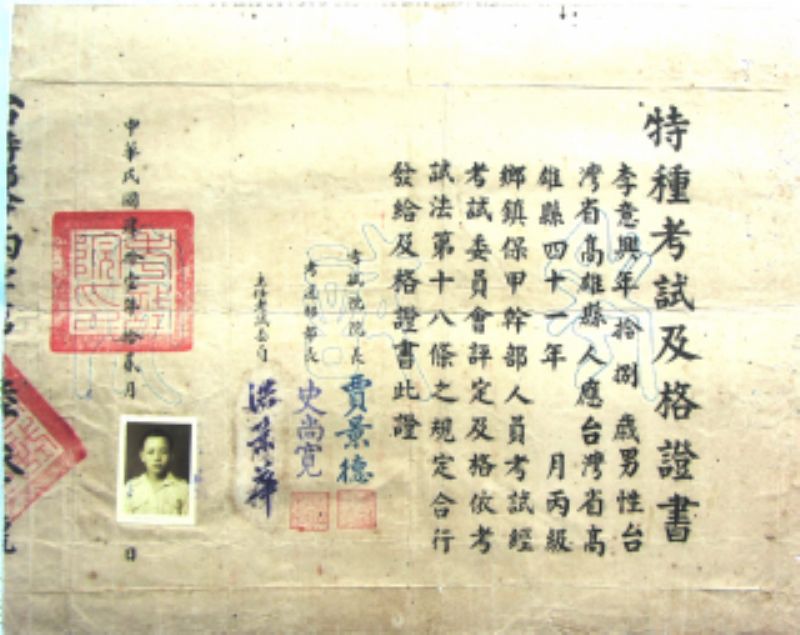 特種考試及格證書
李意興年拾捌歲男性台
灣省高雄縣人應台灣省高
雄縣四十一年 月丙級
鄉鎮保甲幹部人員考試經
考試委員會評定及格依考
試法第十八條之規定合行
發給及格證書此證
考試院院長 賈景德
考選部部長 史尚寬
中華民國肆拾壹年拾貳月 日